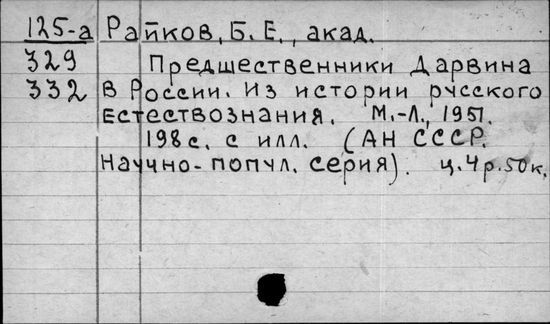 125-а Райков, Б. Е., акад.
329 Предшественники Дарвина
332 в России. Из истории русского
естествознания. М.-Л., 1951.
198 с. с илл. (АН СССР.
Научно-попул. серия). ц. 4 р. 50 к.